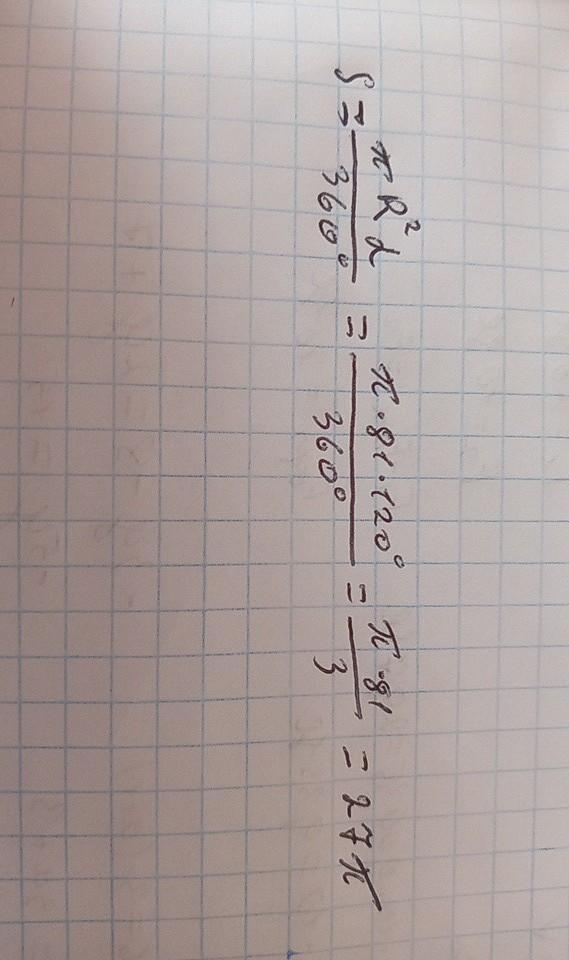 S = πR²α/360° = π·81·120°/360° = π·81/3 = 27π